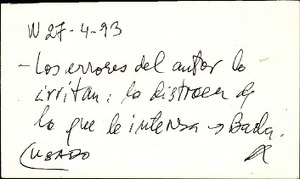 W 27-4-93
- Los errores del autor lo
irritan: lo distraen de
lo que le interesa →
USADO